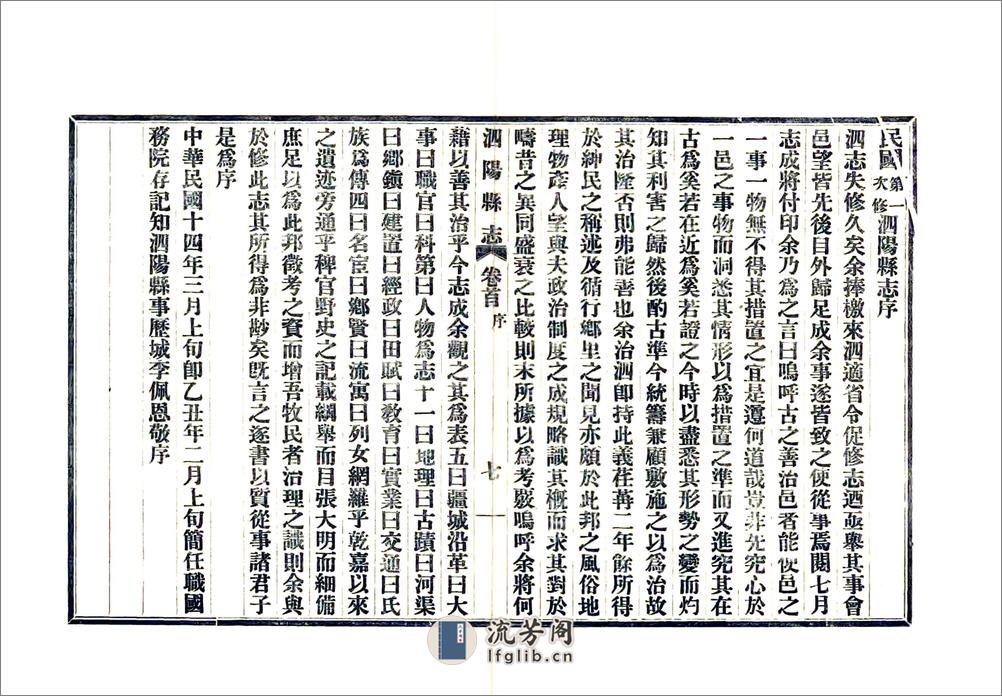 民國第一次修泗陽縣志序
泗志失修久矣余捧檄來泗適省令促修志迺亟舉其事會
邑望皆先後自外歸足成余事遂皆致之使從事焉閱七月
志成將付印余乃為之言曰嗚呼古之善治邑者能使邑之
一事一物無不得其措置之宜是遵何道哉豈非先究心於
一邑之事物而洞悉其情形以為措置之準而又進究其在
古為奚若在近為奚若證之今時以盡悉其形勢之變而灼
知其利害之歸然後酌古準今統籌兼顧敷施之以為治故
其治隆否則弗能善也余治泗卽持此義荏苒二年餘所得
於紳民之稱述及循行鄉里之聞見亦頗於此邦之風俗地
理物產人望與夫政治制度之成規略識其概而求其對於
疇昔之異同盛衰之比較則末所據以為考覈嗚呼余將何
泗陽縣志 卷首 序 七
藉以善其治乎今志成余觀之其為表五曰疆城沿革曰大
事曰職官曰科第曰人物為志十一曰地理曰古蹟曰河渠
曰鄉鎮曰建置曰經政曰田賦曰教育曰實業曰交通曰氏
族為傳四曰名宦曰鄉賢曰流寓曰列女網羅乎乾嘉以來
之遺迹旁通乎稗官野史之記載綱舉而目張大明而細備
庶足以為此邦徵考之資而增吾牧民者治理之識則余與
於修此志其所得為非尠矣旣言之遂書以質從事諸君子
是為序
中華民國十四年三月上旬卽乙丑年二月上旬簡任職國
務院存記知泗陽縣事歷城李佩恩敬序
流芳阁
lfglib.cn